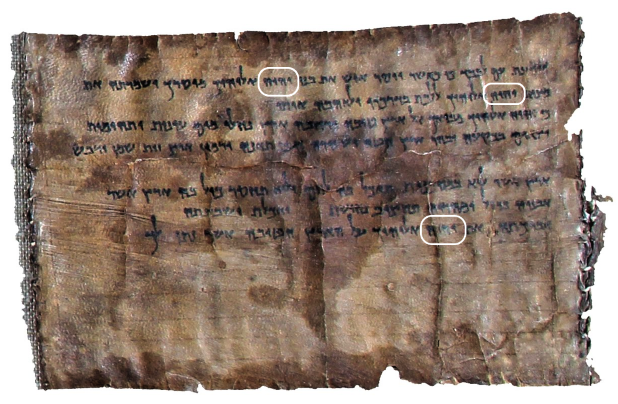 עם לבבך כי כאשר ייסר איש את בנו יהוה אלוהיך מיסרך ושמרתה את
מצות יהוה אלוהיך ללכת בדרכיו ולאהבה אותו
כי יהוה אלוהיך מביאך אל ארץ טובה ורחבה ארץ נחלי מים עינות ותהומות
בבקעה ובהר ארץ חטה ושעורה גפן ותאנה ורמון ארץ זית שמן ודבש
ארץ אשר לא במסכנות תאכל בה לחם ולא תחסר כול בה ארץ אשר
אבניה ברזל ומהרריה תחצוב נחושת ואכלת ושבעתה
וברכתה את יהוה אלוהיך על הארץ הטובה אשר נתן לך